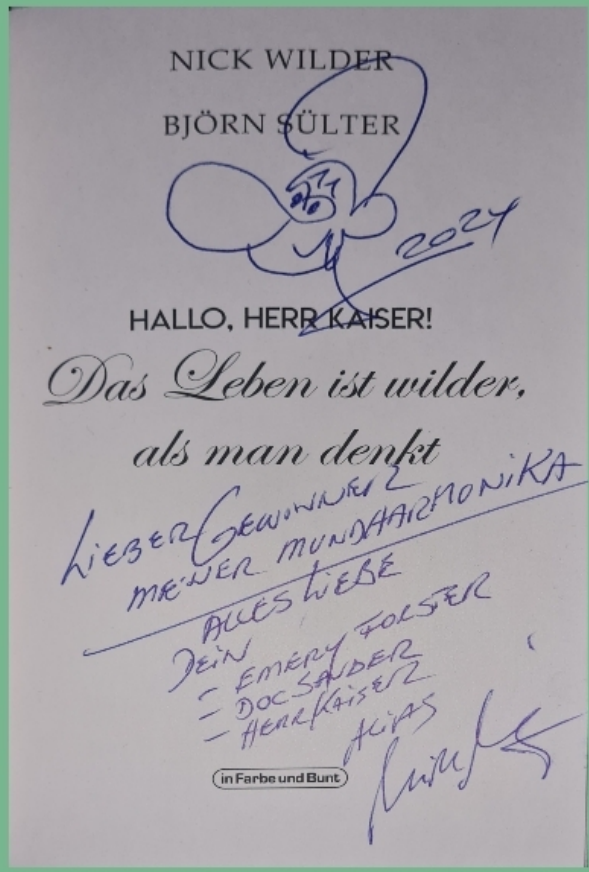 NICK WILDER
BJÖRN SÜLTER
2024
HALLO, HERR KAISER!
Das Leben ist wilder,
als man denkt
LIEBER GEWINNER
MEINER MUNDHARMONIKA
ALLES LIEBE
DEIN
- EMERY FORSTER
- DOC SANDER
- HERR KAISER
ALIAS
in Farbe und Bunt